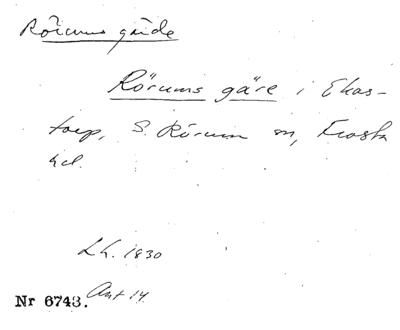 Rörums gärde
Rörums gäre i Ekas-
torp, S. Rörum sn, Frosta
hd.
Lh. 1830
Nr 6743. Ant 14